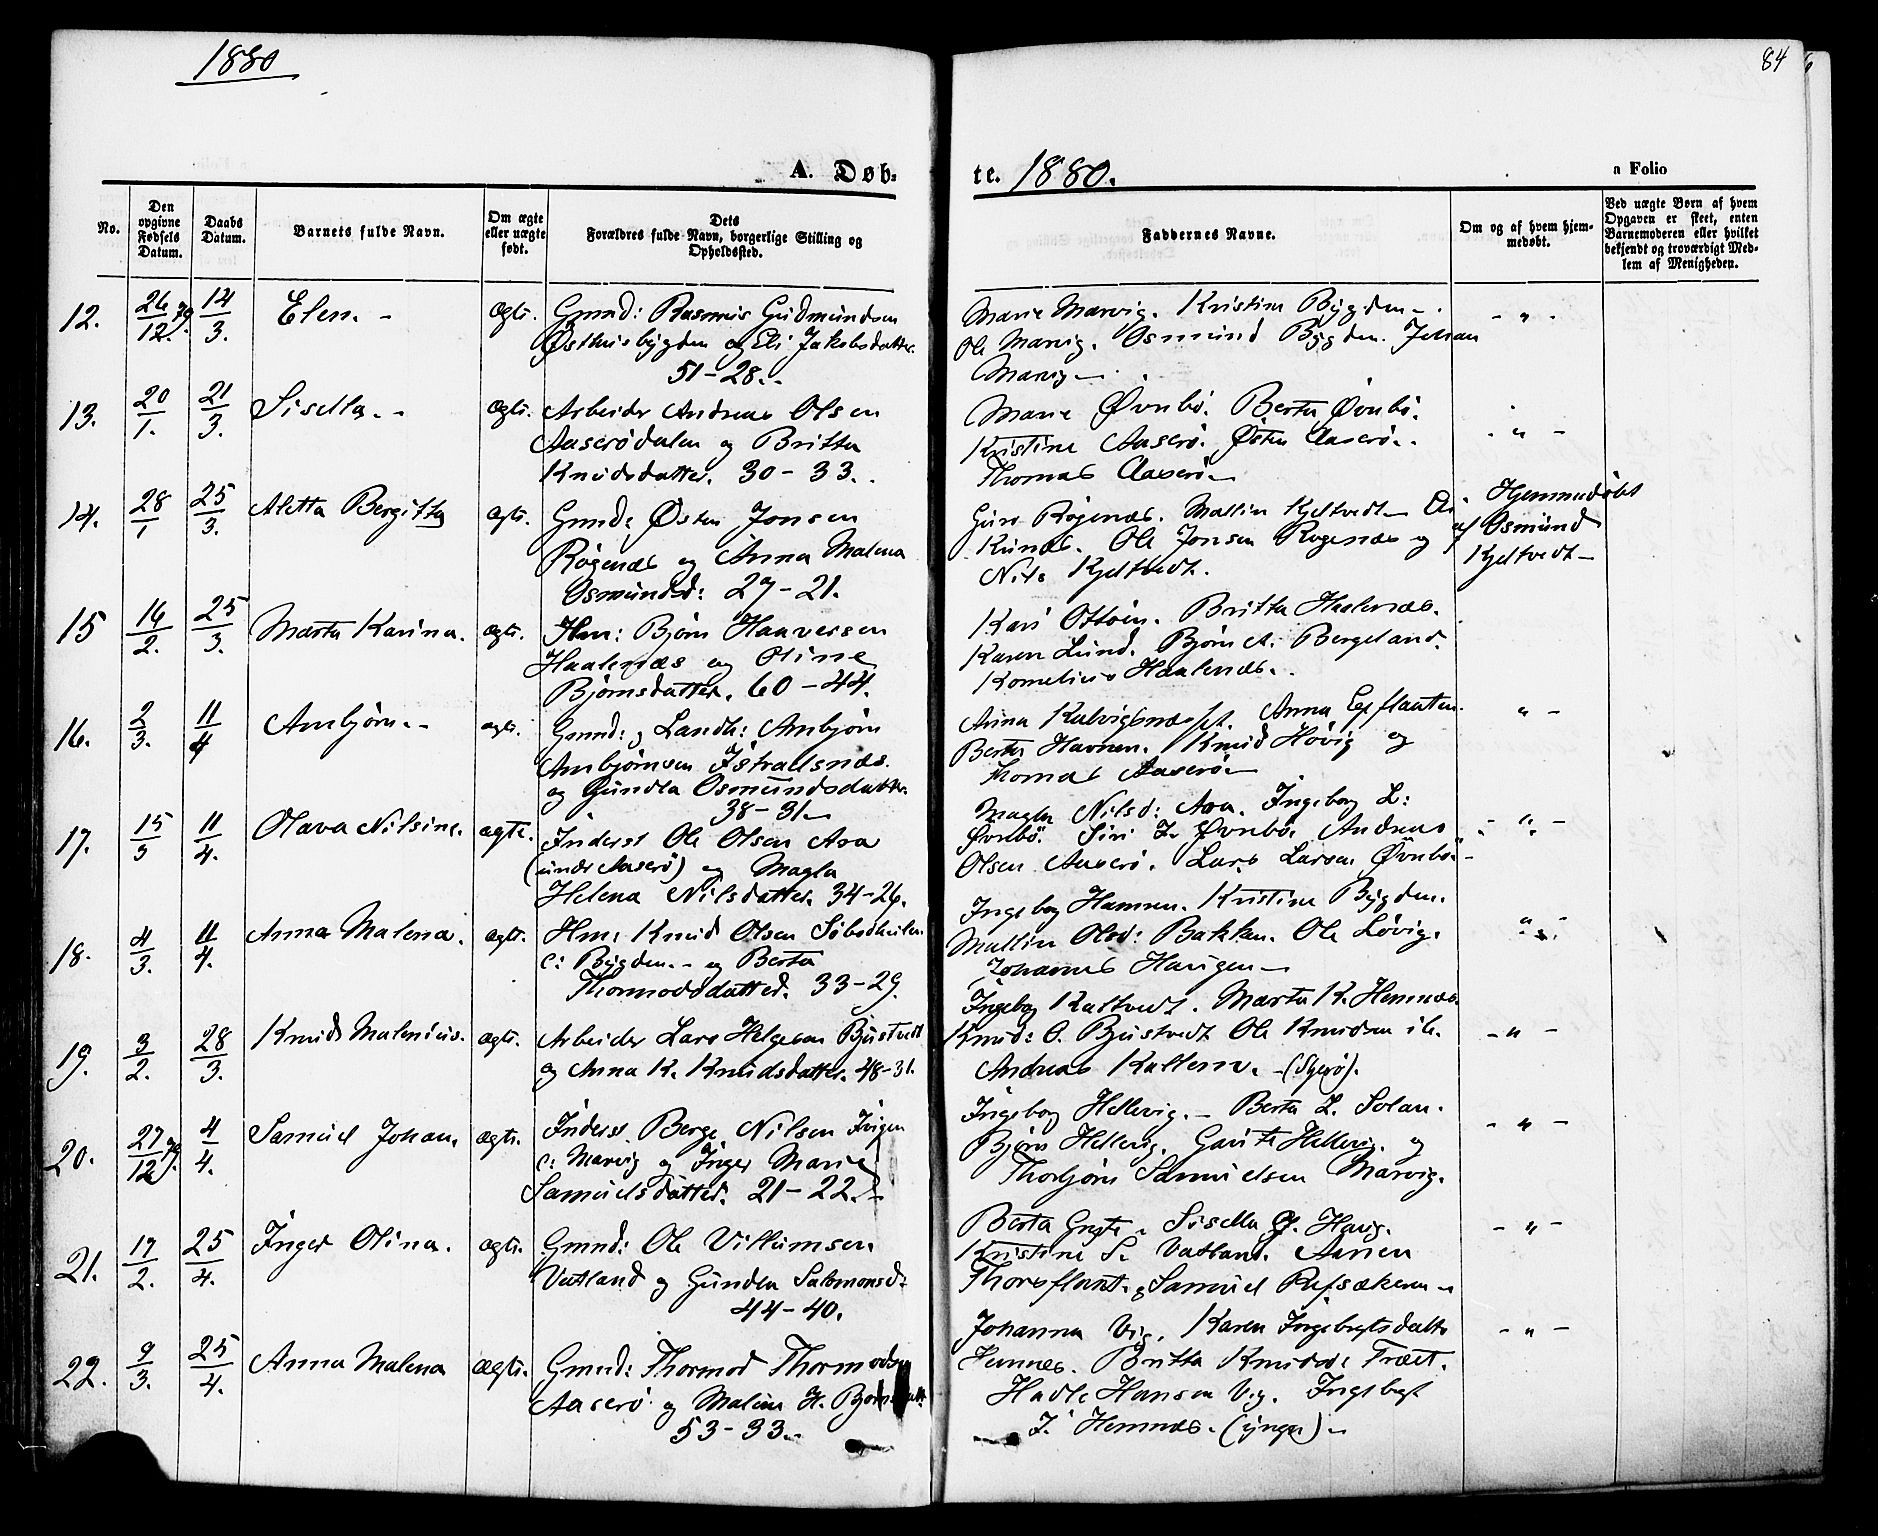 1880
84
A. Døb-
te. 1880.
a Folio
No.
Den opgivne Fødsels Datum.
Daabs Datum.
Barnets fulde Navn.
Om ægte eller uægte født.
Dets Forældres fulde Navn, borgerlige Stilling og Opholdssted.
Faddernes Navne.
Om og af hvem hjemmedøbt.
Ved uægte Børn af hvem Opgaven er skeet, enten Barnemoderen eller hvilket bekjendt og troværdigt Medlem af Menigheden.
12. 26/12.79. 14/3. Elen. - ægte. Gmnd: Rasmus Gudmundsen
Østhusbygden og Eli Jakobsdatter.
51-28.-
Marie Marvig. Kristine Bygden-.
Ole Marvig. Osmund Bygden. Johan
Marvig-.
- " -
13. 20/1. 21/3. Sisella. - ægte. Arbeider Andreas Olsen
Aaserødalen og Britta
Knudsdatter. 30-33.
Marie Øvnbø. Berta Øvnbø.
Kristine Aaserø. Østen Aaserø.
Thomas Aaserø-
- " -
14. 28/1 25/3. Aletta Bergitta ægte. Gmnd: Østen Jonsen
Røgenæs og Anna Malena
Osmundsd: 27-21.
Guro Røgenæs. Mallin Kjeltvedt-
Ole Jonsen Røgenæs og
Nils Kjeltvedt.
Hjemmedøbt
af Osmund
Kjeltvedt-
15 16/2. 25/3. Marta Karina. ægte. Hm: Bjørn Haaversen
Haalenæs og Oline
Bjørnsdatter. 60-44.
Kari Ottøen. Britta Haalenæs.
Karen Lund. Bjørn A. Bergeland.
Kornelius Haalenæs.
16. 2/3. 11/4 Ambjørn. - ægte. Gmnd: og Landh: Ambjørn
Ambjørnsen Istralsnæs.
og Gundla Osmundsdatter.
38-31-
Anna
Berta Havnen. Knud Høvig og
Thomas Aaserø-
" -
17. 15/3 11/4. Olava Nilsine. ægte. Inderst Ole Olsen Ara
(under Aaserø) og Magla
Helena Nilsdatter. 34-26.
Magla Nilsd: Ara. Ingeborg L:
Øvnbø. Siri L. Øvnbø. Andreas
Olsen Aaserø. Lars Larsen Øvnbø-
- " -
18. 4/3. 11/4. Anna Malena. ægte. Hm: Knud Olsen
c: Bygden. - og Berta
Thormodsdatter. 33-29.
Ingeborg Hamren. Kristine Bygden.
Mallin Olsd: Bakken. Ole Løvig.
Johannes Haugen-
" -
19. 3/2. 28/3. Knud Malenius. ægte. Arbeider Lars Helgesen Bjustvedt
og Anna K. Knudsdatter. 48-31.
Ingeborg Kaltvedt. Marta K. Hemnæs.
Knud: O. Bjustvedt Ole Knudsen ib.
Andreas - (Sjerø).
- " -
20. 27/12 79. 4/4. Samuel Johan. ægte. Inderst Berge Nilsen
c: Marvig og Inger Marie
Samuelsdatter. 21-22.-
Ingeborg Hellevig. - Berta L. Solan.
Bjørn Hellevig. Hellevig. og
Thorbjørn Samuelsen Marvig.
- " -
21. 17/2. 25/4. Inger Olina. ægte. Gmnd: Ole Villumsen
Vatland og Gunden Salomonsd-
44-40.
Berta Sisella Havig.
Kristine S. Vatland.
Thorsflant. og Samuel Refsaken-
- " -
22. 9/3. 25/4. Anna Malena ægte. Gmnd: Thormod Thormodsen
Aaserø og Malene H.
53-33.
Johanna Vig. Karen Ingebregtsdatter
Hemnæs. Britta Knudsd: Træet.
Hadle Hansen Vig. Ingebregt
I. Hemnæs. (yngre)-
- " -